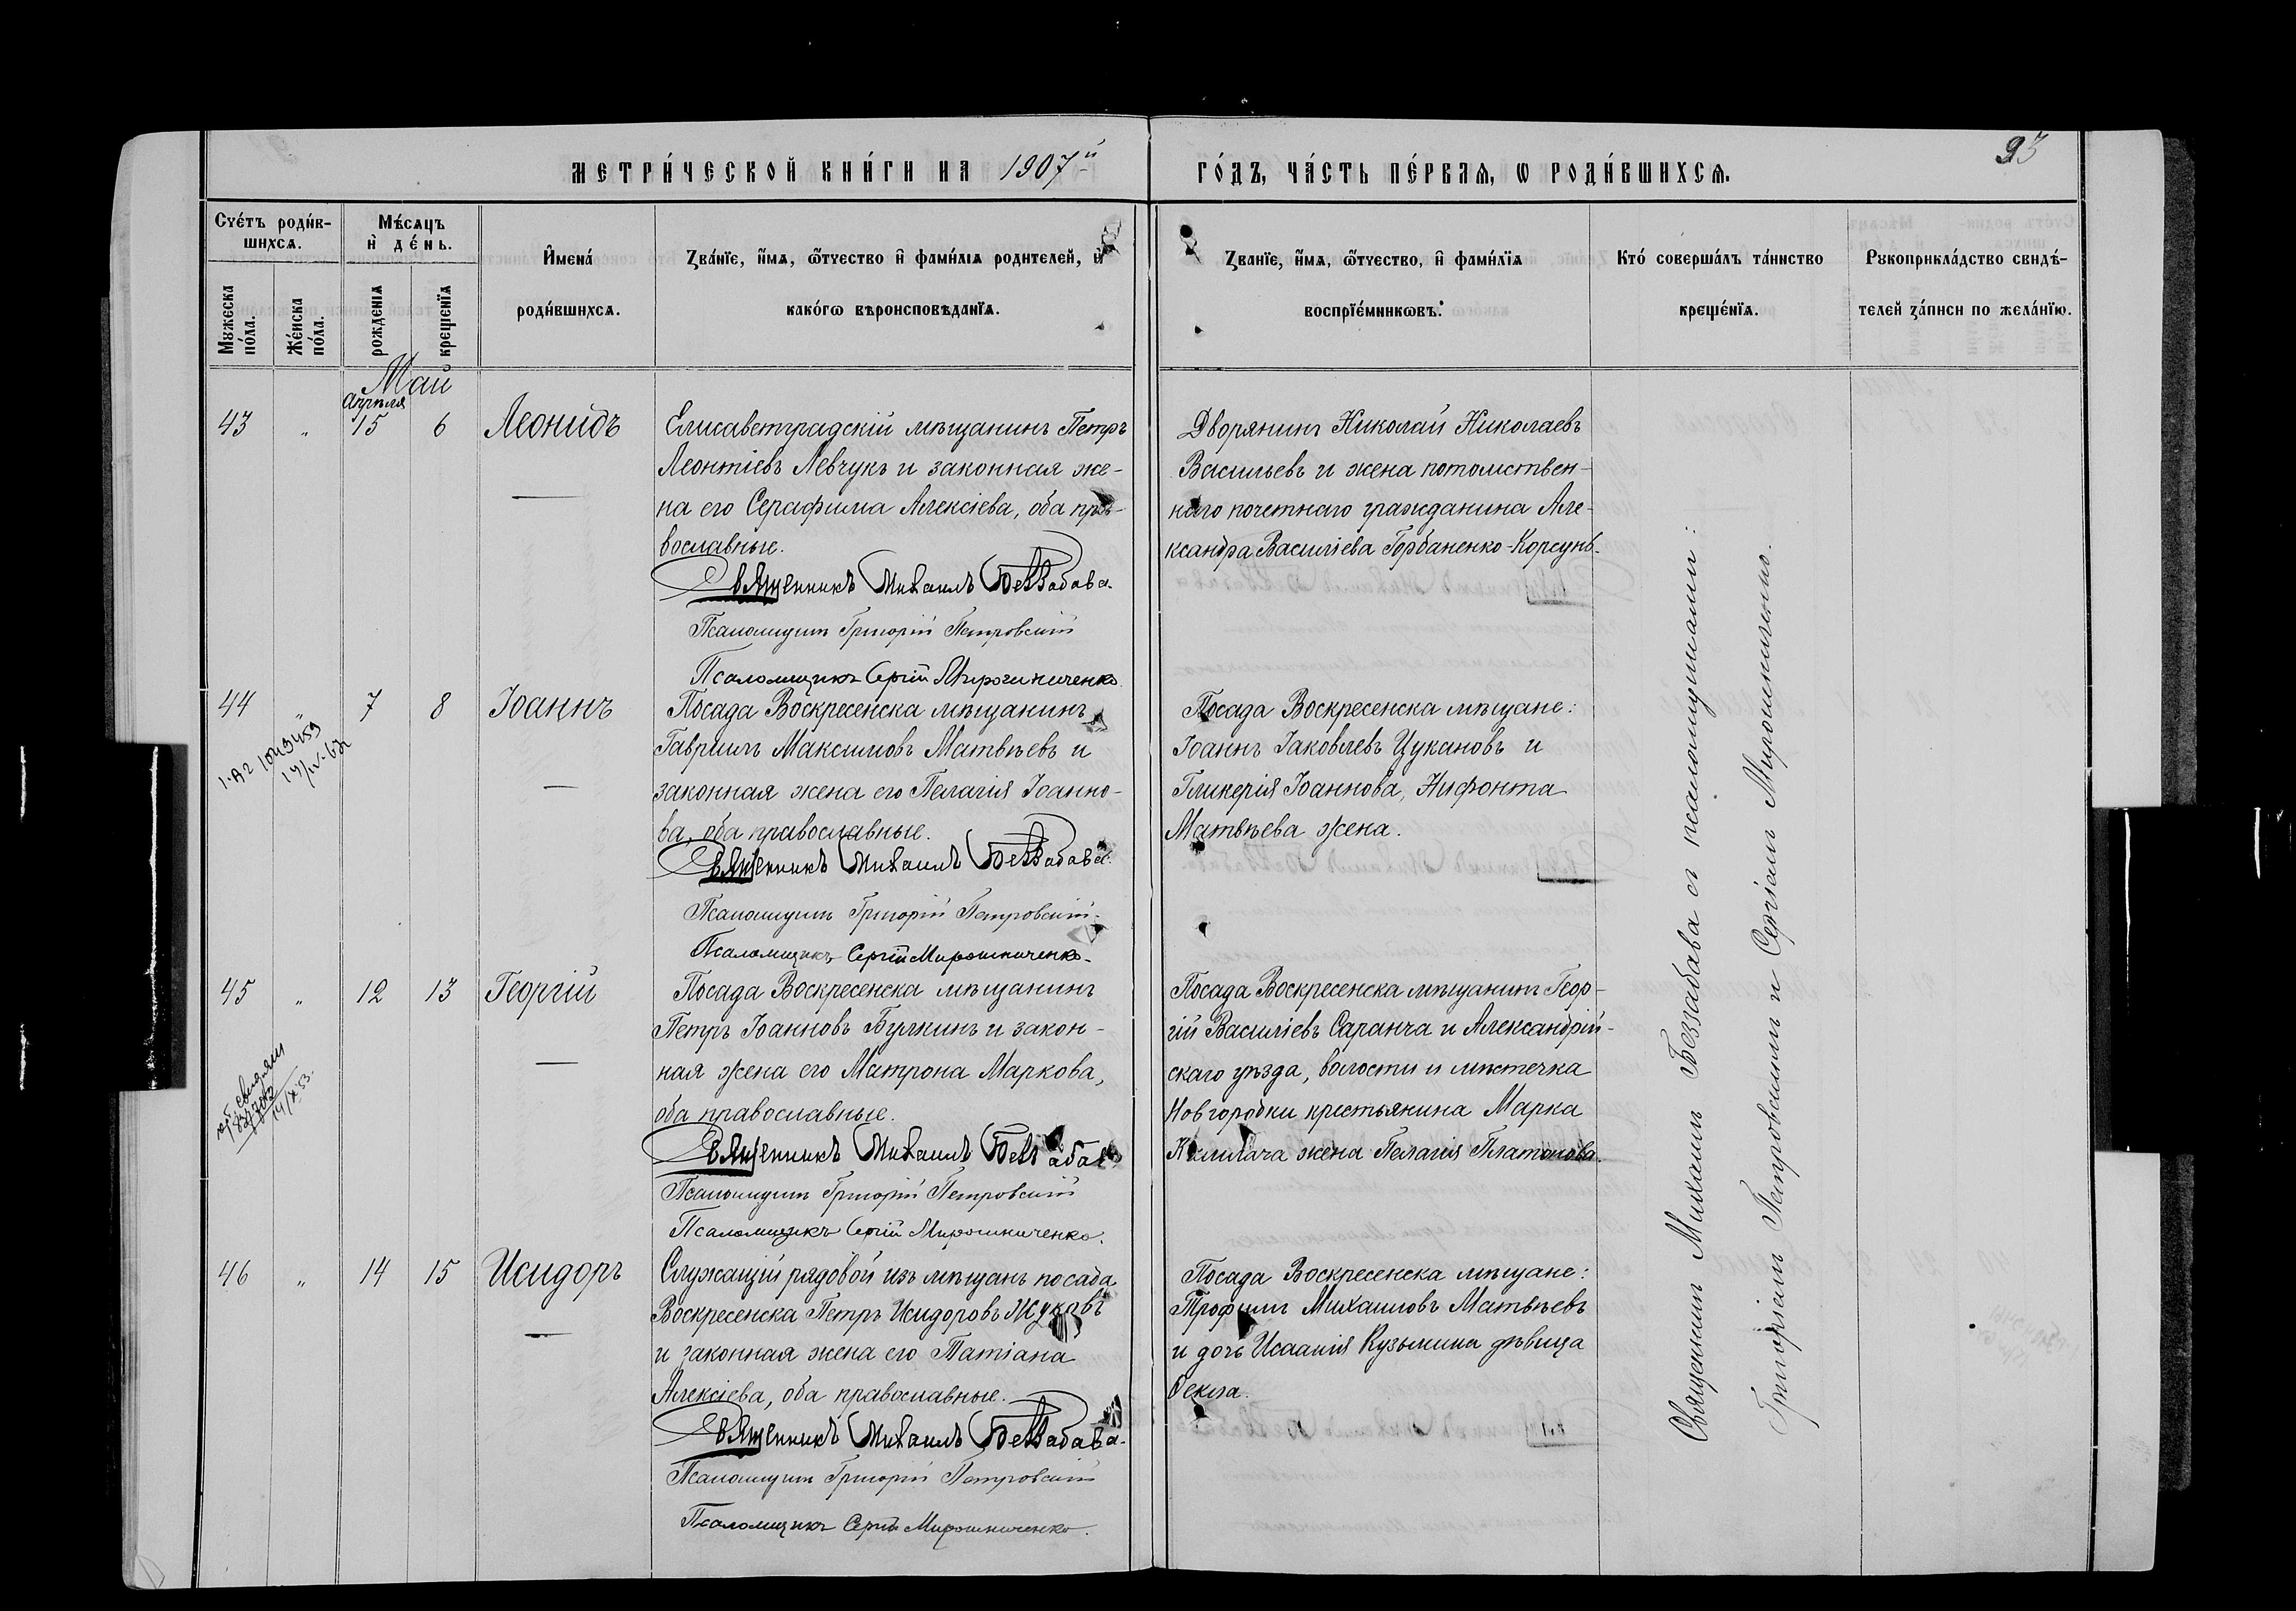 МЕТРИ́ЧЕСКОЙ КНИ́ГИ НА 1907й
ГО́ДЪ, ЧА́СТЬ ПЕ́РВАѦ, Ѡ РОДИ́ВШИХСѦ.
93
Счє́тъ роди́в-
шихсѧ.
Мꙋжєска по́ла.
Жє́нска по́ла.
Мѣ́сѧцъ
и҆ дє́нь.
рождєнїѧ
крєщєнїѧ
И҆мєна́
роди́вшихсѧ.
Зва́нїє, и҆́мѧ, ѻ҆́тчєство и҆ фами́лїѧ родитєлєй, и҆
како́гѡ вѣроисповѣданїѧ.
Званїє, и҆́мѧ, ѻ҆́тчєство, и҆ фами́лїѧ
воспрїє́мникѡвъ.
Кто́ совєрша́лъ та́инство
крєщє́нїѧ.
Рꙋкоприкла́дство свидѣ́-
тєлєй за́писи по жєла́нїю.
Май
Апрѣля
43 „ 15 6 Леонидъ
Елисаветградскій мѣщанинъ Петръ
Леонтіевъ Левчукъ и законная же-
на его Серафима Алексіева, оба пра-
вославные.
Священникъ Михаилъ Беззабава.
Псаломщикъ Григорій Петровскій
Псаломщикъ Сергій Мирошниченко
Дворянинъ Николай Николаевъ
Васильевъ и жена потомствен-
наго почетнаго гражданина Але-
ксандра Василіева Горбаненко-Корсунь.
44 „ 7 8 Іоаннъ
Посада Воскресенска мѣщанинъ
Гавріилъ Максимовъ Матвѣевъ и
законная жена его Пелагія Іоанно-
ва, оба православные.
Священникъ Михаилъ Беззабава.
Псаломщикъ Григорій Петровскій.
Псаломщикъ Сергій Мирошниченко.
Посада Воскресенска мѣщане:
Іоаннъ Іаковлевъ Цукановъ и
Гликерія Іоаннова, Нифонта
Матвѣева жена.
45 „ 12 13 Георгій
14/X 53.
Посада Воскресенска мѣщанинъ
Петръ Іоанновъ Булкинъ и закон-
ная жена его Матрона Маркова,
оба православные.
Священникъ Михаилъ Беззабава
Псаломщикъ Григорій Петровскій
Псаломщикъ Сергій Мирошниченко.
Посада Воскресенска мѣщанинъ Геор-
гій Василіевъ Саранча и Александрій-
скаго уѣзда, волости и мѣстечка
Новгородки крестьянина Марка
жена Пелагія Платонова.
46 „ 14 15 Исидоръ
Служащій рядовой изъ мѣщанъ посада
Воскресенска Петръ Исидоровъ Жуковъ
и законная жена его Татіана
Алексіева, оба православные.
Священникъ Михаилъ Беззабава.
Псаломщикъ Григорій Петровскій
Псаломщикъ Сергій Мирошниченко.
Посада Воскресенска мѣщане:
Трофимъ Михаиловъ Матвѣевъ
и дочь Исаакія Кузьмина дѣвица
Ѳекла.
Священникъ Михаилъ Беззабава съ псаломщиками:
Григоріемъ Петровскимъ и Сергіемъ Мирошниченко.